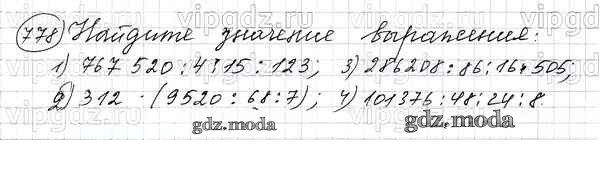 778) Найдите значение выражения:
1) 767 520 : 4 : 15 : 123; 3) 286208 : 86 : 16 · 505;
2) 312 · (9520 : 68 : 7); 4) 101376 : 48 : 24 : 8.
gdz.moda gdz.moda